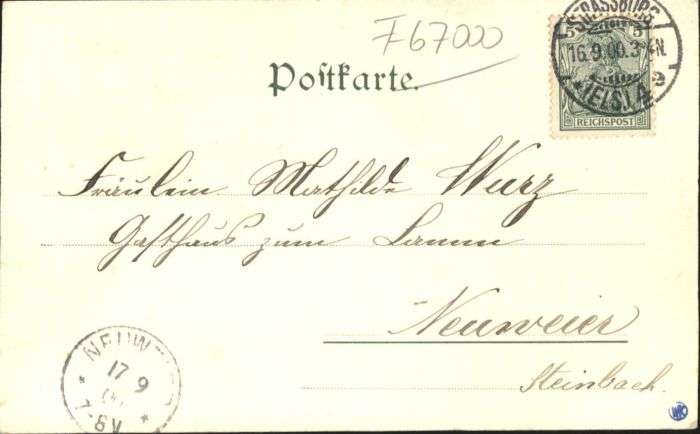 F67000
Postkarte.
STRASSBURG
5 5
16.9.00.3-4N.
* (ELS) 4 e
REICHSPOST
Fräulein Mathilde Wurz
Gasthaus zum Lamm
Neuweier
Steinbach.
17 9
7-8V